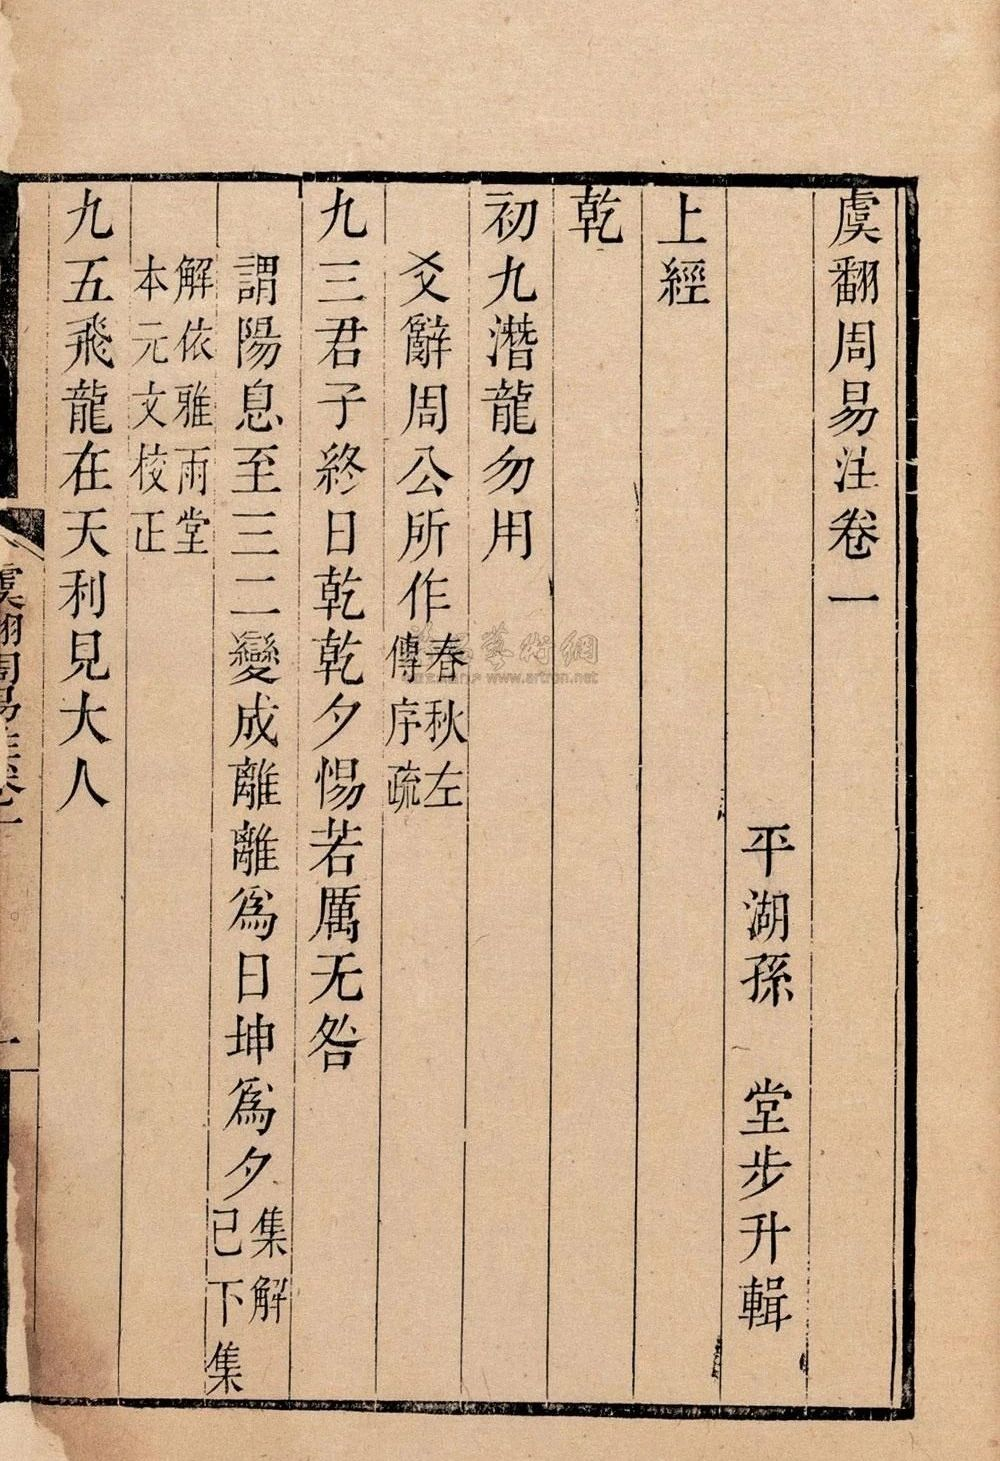 虞翻周易注卷一
平湖孫　堂步升輯
上經
乾
初九潛龍勿用
爻辭周公所作春秋左傳序疏
九三君子終日乾乾夕惕若厲无咎
謂陽息至三二變成離離爲日坤爲夕集解已下集
解依雅雨堂本元文校正
九五飛龍在天利見大人
虞翻周易注卷一
一
藝術網
www.artron.net